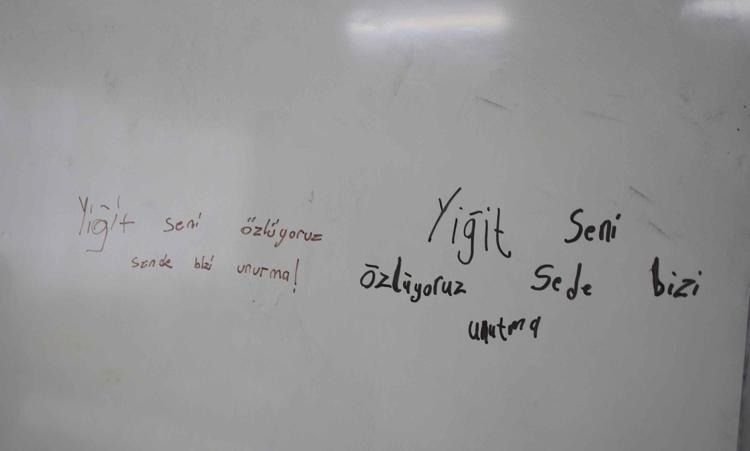 Yiğit seni özlüyoruz
sende bizi unurma!
Yiğit Seni
özlüyoruz Sede bizi
unutma